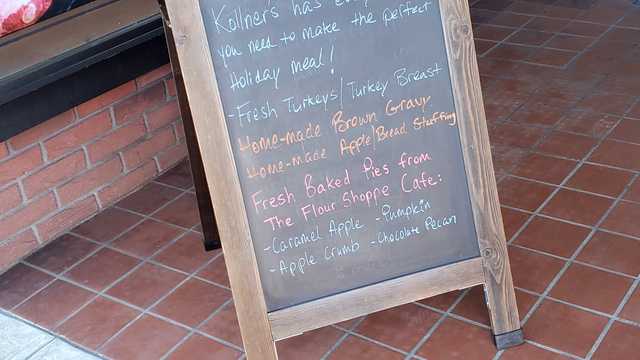 Kollner's has
you need to make the perfect
Holiday meal!
-Fresh Turkeys/Turkey Breast
Home-made Brown Gravy
Home-made Apple/Bread Stuffing
Fresh Baked Pies from
The Flour Shoppe Cafe:
-Caramel Apple -Pumpkin
-Apple Crumb -Chocolate Pecan